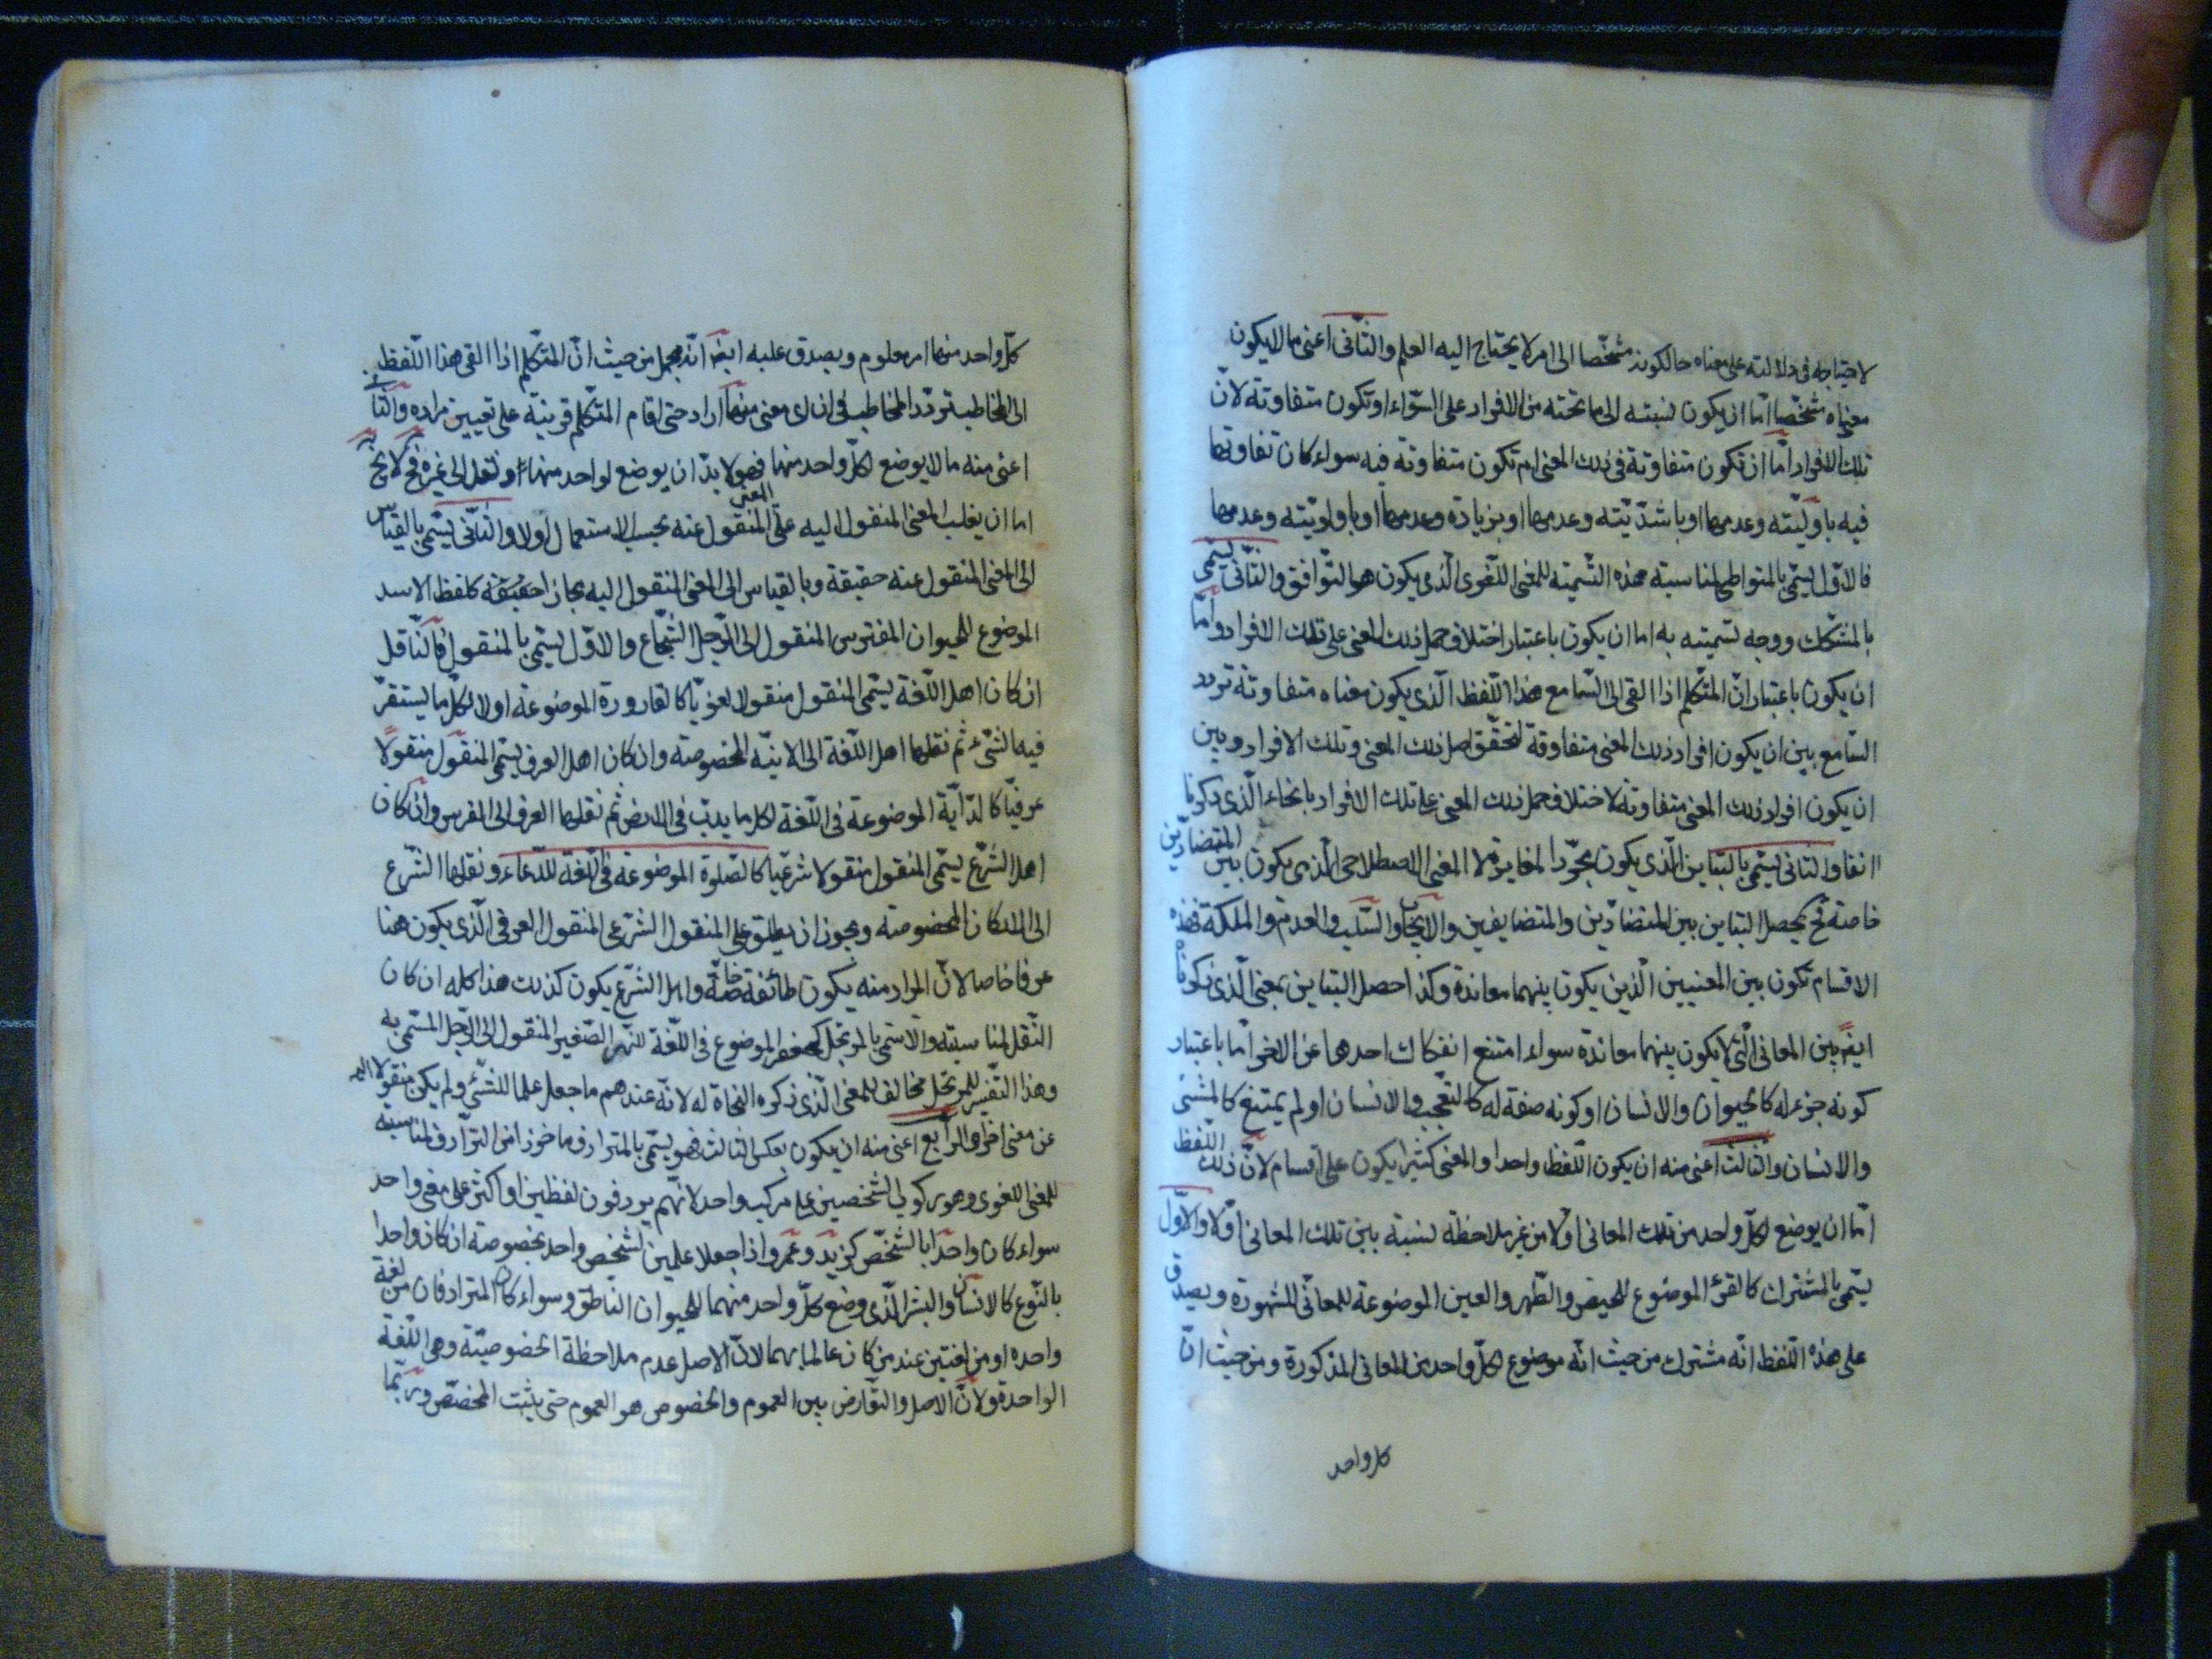 لاحتياجه فى دلالته على معناه حالكونه مشخّصا الى امر لا يحتاج اليه العلم والثّانى اعنى ما لا يكون
معناه مشخّصا امّا ان يكون نسبته الى ما تحته من الافراد على السّواء او تكون متفاوتة لانّ
تلك الافراد امّا ان تكون متفاوتة فى ذلك المعنى ام تكون متفاوتة فيه سواء كان تفاوتها
فيه باوّليّته وعدمها او باشدّيّته وعدمها او بزيادة وعدمها او باولويّته وعدمها
فالاوّل يسمّى بالمتواطى لمناسبة هذه التّسمية للمعنى اللّغوى الّذى يكون هو التّوافق والثّانى يسمّى
بالمشكّك ووجه تسميته به اما ان يكون باعتبار اختلاف حمل ذلك المعنى على تلك الافراد وامّا
ان يكون باعتبار انّ المتكلّم اذا القى الى السّامع هذا اللّفظ الّذى يكون معناه متفاوتة تردد
السّامع بين ان يكون افراد ذلك المعنى متفاوتة لتحقّق اصل ذلك المعنى وتلك الافراد وبين
ان يكون افراد ذلك المعنى متفاوتة لاختلاف حمل ذلك المعنى على تلك الافراد بانحاء الّذى ذكرنا
انفا والثانى يسمّى بالتباين الّذى يكون بمجرّد المغايرة لا المعنى الاصطلاحى الّذى يكون بين المتضادّين
خاصة فح يحصل التباين بين المتضادّين والمتضايفين والايجاب والسّلب والعدم والملكة فهذه
الاقسام تكون بين المعنيين الّذين يكون بينهما معاندة وكذا حصل التباين بمعنى الّذى ذكرنا
ايضا بين المعانى الّتى لا يكون بينهما معاندة سواء امتنع انفكاك احدها عن الاخر امّا باعتبار
كونه جزء له كالحيوان والانسان او كونه صفة له كالتعجّب والانسان او لم يمتنع كالمشى
والانسان والثالث اعنى منه ان يكون اللّفظ واحدا والمعنى كثيرا يكون على اقسام لانّ ذلك اللّفظ
امّا ان يوضع لكلّ واحد من تلك المعانى اوّلا من غير ملاحظة نسبة بين تلك المعانى اوّلا والاوّل
يسمّى بالمشترك كالقرء الموضوع للحيض والطّهر والعين الموضوعة للمعانى المشهورة ويصدق
على هذه اللّفظ انّه مشترك من حيث انّه موضوع لكلّ واحد من المعانى المذكورة ومن حيث انّ
كل واحد
كلّ واحد منها امر معلوم ويصدق عليه ايضا انّه مجمل من حيث انّ المتكلّم اذا القى هذا اللّفظ
الى المخاطب تردّد المخاطب فى ان اى معنى منها اراد حتى اقام المتكلّم قرينة على تعيين مراده والثّانى
اعنى منه ما لا يوضع لكلّ واحد منها فهو لا بدّ ان يوضع لواحد منها او نقل الى غيره فح لا يخ
اما ان يغلب المعنى المنقول اليه على المعنى المنقول عنه بحسب الاستعمال اولا والثّانى يسمّى بالقياس
الى المعنى المنقول عنه حقيقة وبالقياس الى المعنى المنقول اليه مجازا كلفظ الاسد
الموضوع للحيوان المفترس المنقول الى الرّجل الشّجاع والاوّل يسمّى بالمنقول فالنّاقل
ان كان اهل اللّغة يسمّى المنقول منقولا لغويّا كالقارورة الموضوعة اولا لكلّ ما يستقرّ
فيه الشّىء ثم نقلها اهل اللّغة الى الانية المخصوصة وان كان اهل العرف يسمّى المنقول منقولا
عرفيّا كالدّابّة الموضوعة فى اللّغة لكل ما يدبّ فى الارض ثم نقلها العرف الى الفرس وان كان
اهل الشّرع يسمّى المنقول منقولا شرعيّا كالصّلوة الموضوعة فى اللّغة للدّعاء ونقلها الشّرع
الى الاركان المخصوصة ويجوز ان يطلق على المنقول الشّرعى المنقول العرفى الّذى يكون هنا
عرفا خاصا لانّ المراد منه يكون طائفة خاصّة واهل الشّرع يكون كذلك هذا كله ان كان
النّقل لمناسبة والّا سمّى بالمرتجل كجعفر الموضوع فى اللّغة للنّهر الصّغير المنقول الى الرّجل المسمّى به
وهذا التّفسير للمرتجل مخالف للمعنى الّذى ذكره النحاة له لانّه عندهم ما جعل علما للشّىء ولم يكن منقولا اليه
عن معنى اخر والرّابع اعنى منه ان يكون بعكس الثالث فهو يسمّى بالمترادف ماخوذ من التّرادف لمناسبة
للمعنى اللغوى وهو ركوب الشخصين على مركب واحد لانّهم يوردفون لفظين او اكثر على معنى واحد
سواء كان واحدا بالشّخص كزيد وعمرو اذا جعلا علمين لشخص واحد بخصوصة ان كان واحدا
بالنّوع كالانسان والبشر الّذى وضع كلّ واحد منهما للحيوان النّاطق وسواء كان المترادفان من لغة
واحده او من لغتين عند من كان عالما بهما لانّ الاصل عدم ملاحظة الخصوصيّة وهى اللّغة
الواحدة ولانّ الاصل والتّعارض بين العموم والخصوص هو العموم حتى يثبت المخصّص وربّما